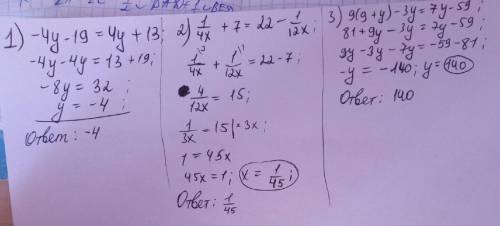 1) -4y-19=4y+13;
-4y-4y=13+19;
-8y=32;
y=-4;
Ответ: -4
2) 1/4x + 7 = 22 - 1/12x;
1\3/4x + 1\1/12x = 22-7;
4/12x = 15;
1/3x = 15 | *3x;
1=45x
45x=1; x = 1/45;
Ответ: 1/45
3) 9(9+y)-3y=7y-59;
81+9y-3y=7y-59;
9y-3y-7y=-59-81;
-y=-140; y=140
Ответ: 140